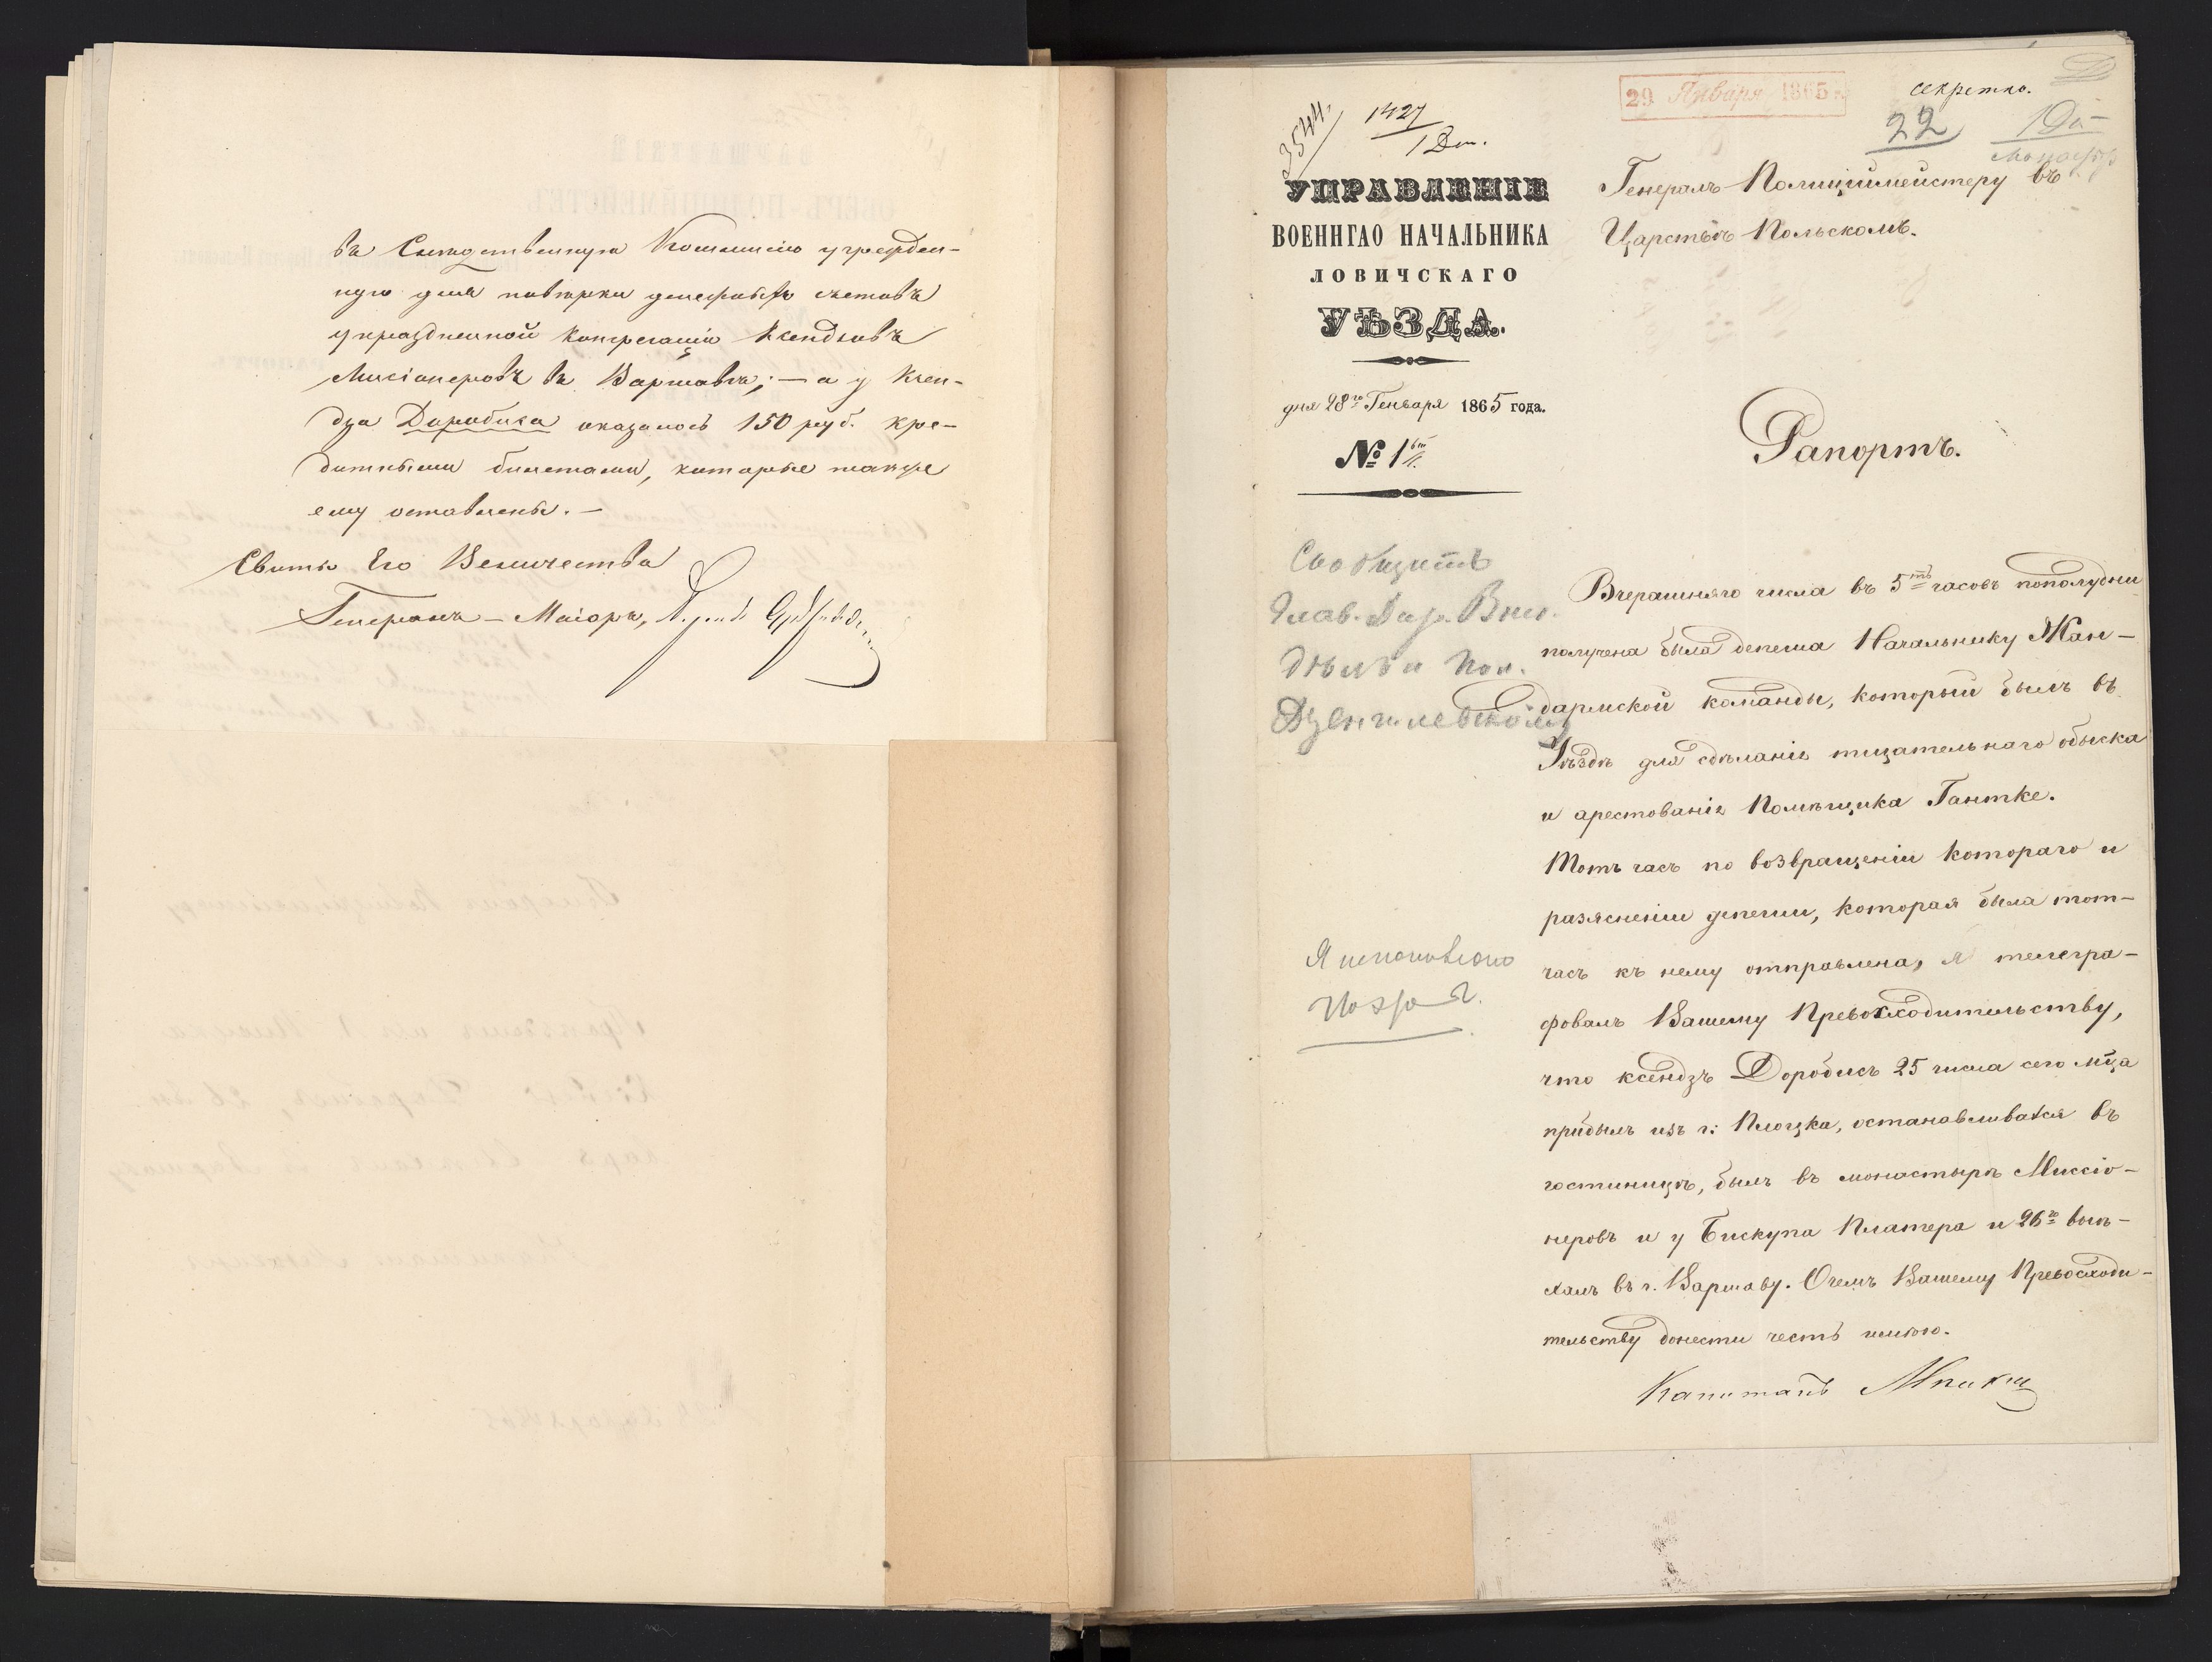 въ Следственную Коммисію учрежден-
ную для поверки денежныхъ счетовъ
упраздненной Конгрегаціи Ксендзовъ
Мисіонеровъ въ Варшаве; — а у Ксен-
дза Доробиса оказалось 150 руб. кре-
дитными билетами, которые также
ему оставлены. —
Свиты Его Величества
Генералъ-Маіоръ,
29 Января 1865
секретно.
3544
1427
1 Дѣл.
22
УПРАВЛЕНІЕ
ВОЕННГАО НАЧАЛЬНИКА
ЛОВИЧСКАГО
УѢЗДА.
дня 28го Генваря 1865 года.
№ 1
Генералъ Полиціймейстеру въ
Царствѣ Польскомъ.
Рапортъ.
Сообщить
Глав. Дир. Внут.
Дѣлъ и Пол.
Вчерашняго числа въ 5ть часовъ пополудни
получена была депеша Начальнику Жан-
дармской команды, который былъ въ
Уѣздѣ для сдѣланія тщательнаго обыска
и арестованія Помѣщика Гантке.
Тотъ часъ по возвращеніи котораго и
разясненіи депеши, которая была тот-
часъ къ нему отправлена, я телегра-
фовалъ Вашему Превосходительству,
что ксендзъ Доробисъ 25 числа сего мца
прибылъ изъ г: Плоцка, останавливался въ
гостиницѣ, былъ въ монастырѣ Миссіо-
неровъ и у Бискупа Платера и 26го выѣ-
халъ въ г. Варшаву. О чемъ Вашему Превосходи-
тельству донести честь имѣю.
Капитанъ